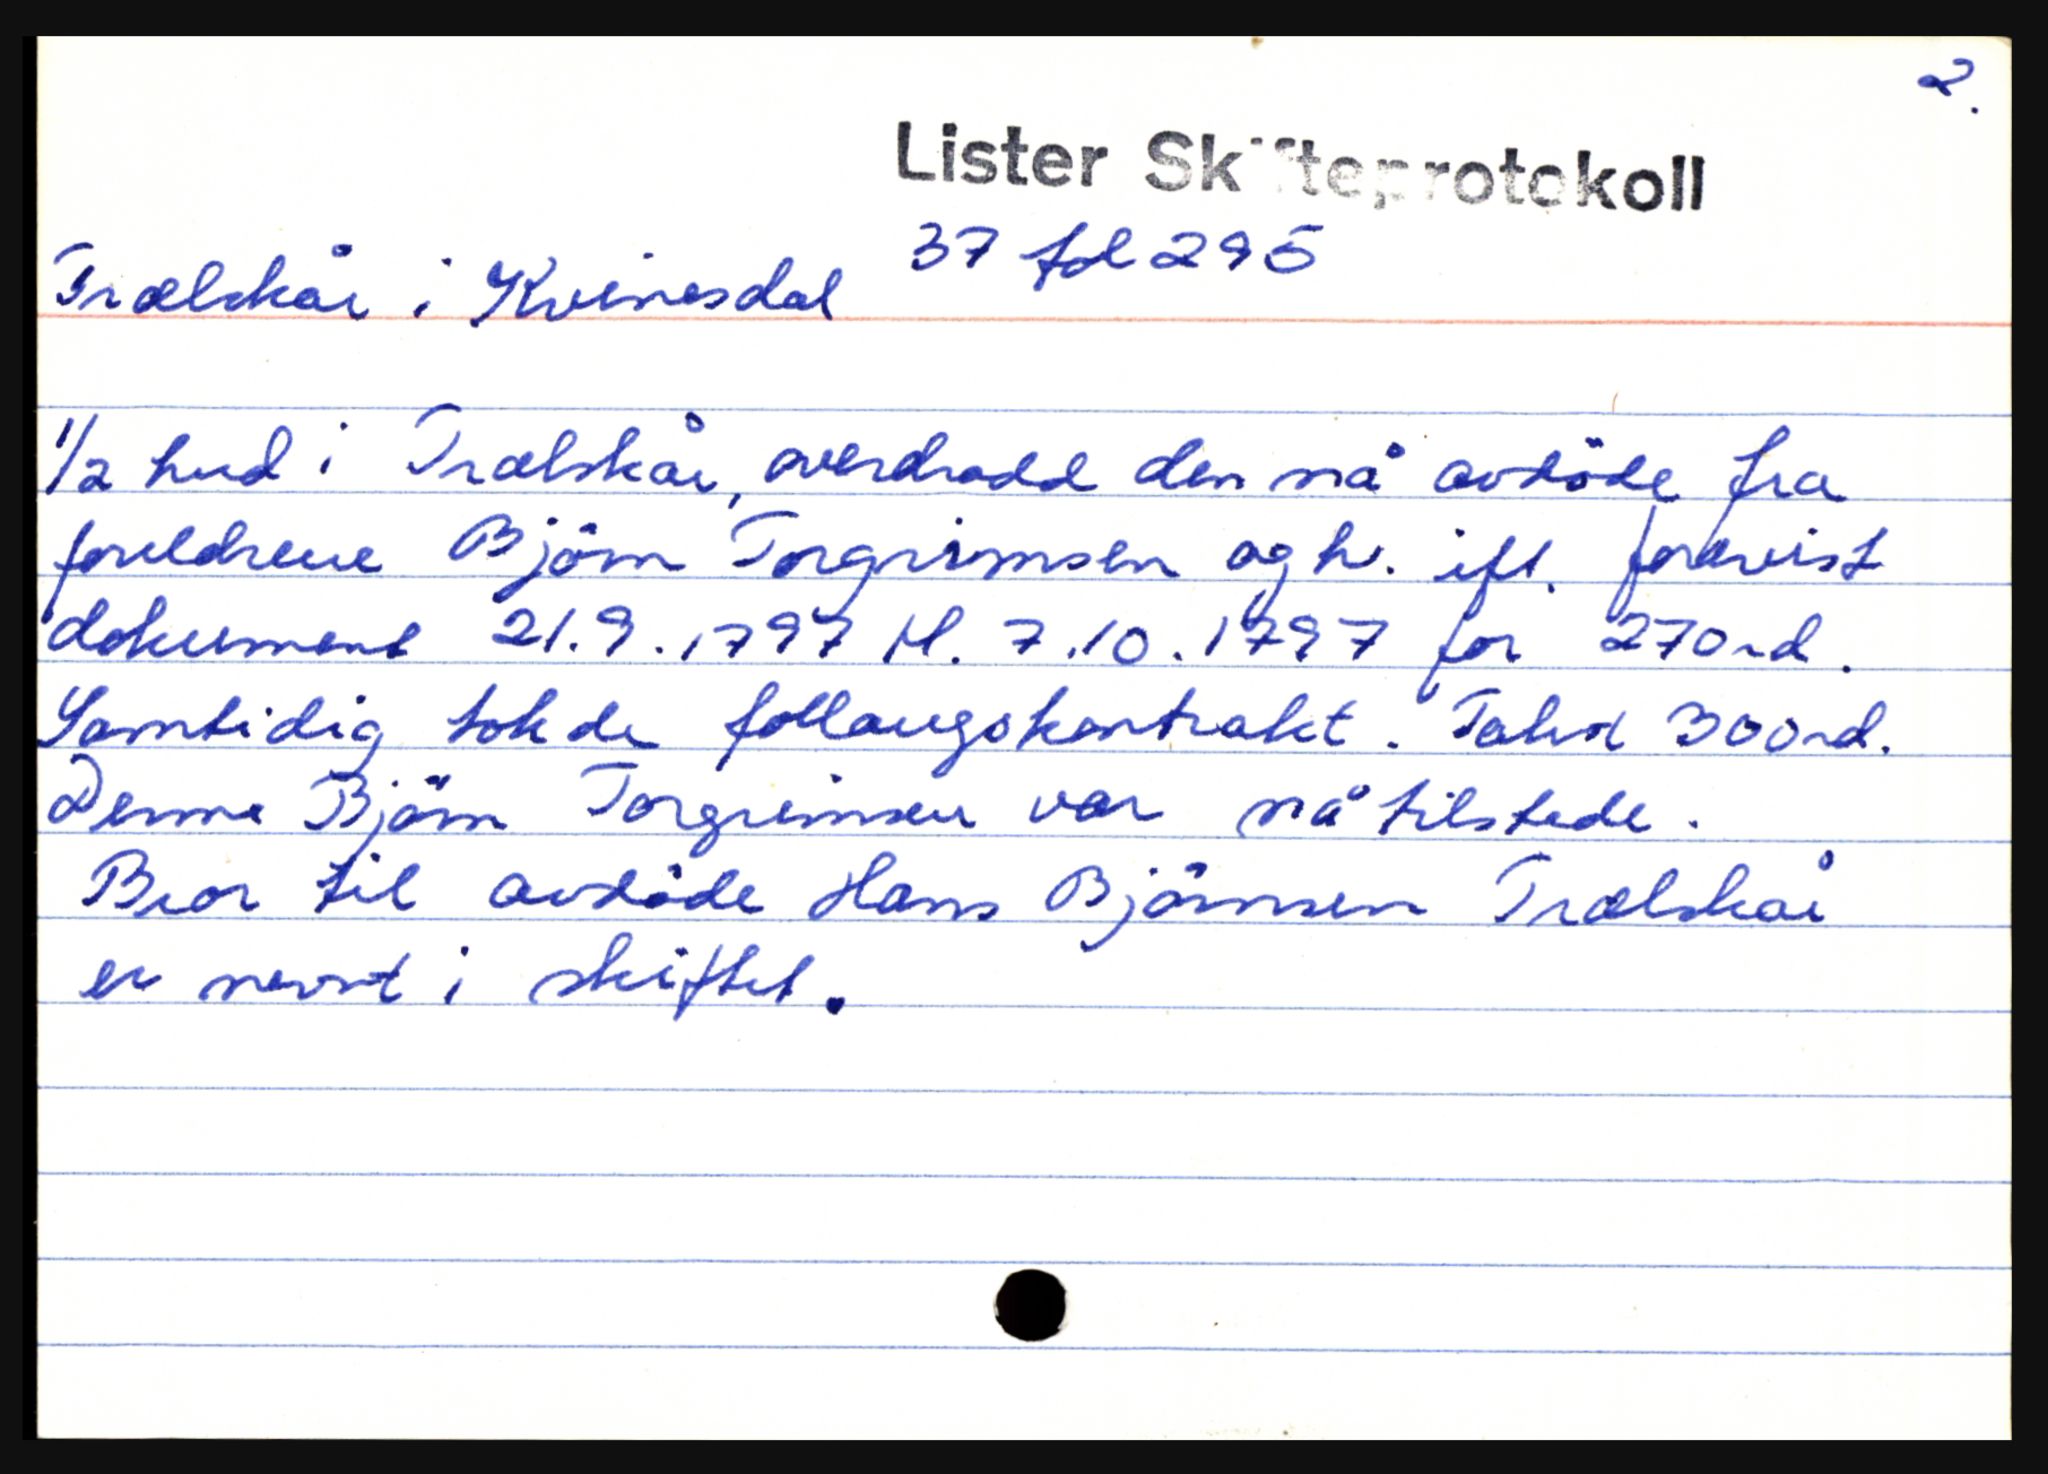 2.
Lister Skifteprotokoll
37 fol 295
Trælskår i Kvinesdal
1/2 hud i Trælskår, overdradd den nå avdöde fra
foreldrene Bjørn Torgrimsen og h. ifl. forevist
dokument 21.9.1797 tl. 7.10.1797 for 270 rd.
Samtidig tok de follaugskontrakt. Takst 300 rd.
Denne Bjørn Torgrimsen var nå tilstede.
Bror til avdöde Hans Bjørnsen Trælskår
er nevnt i skiftet.